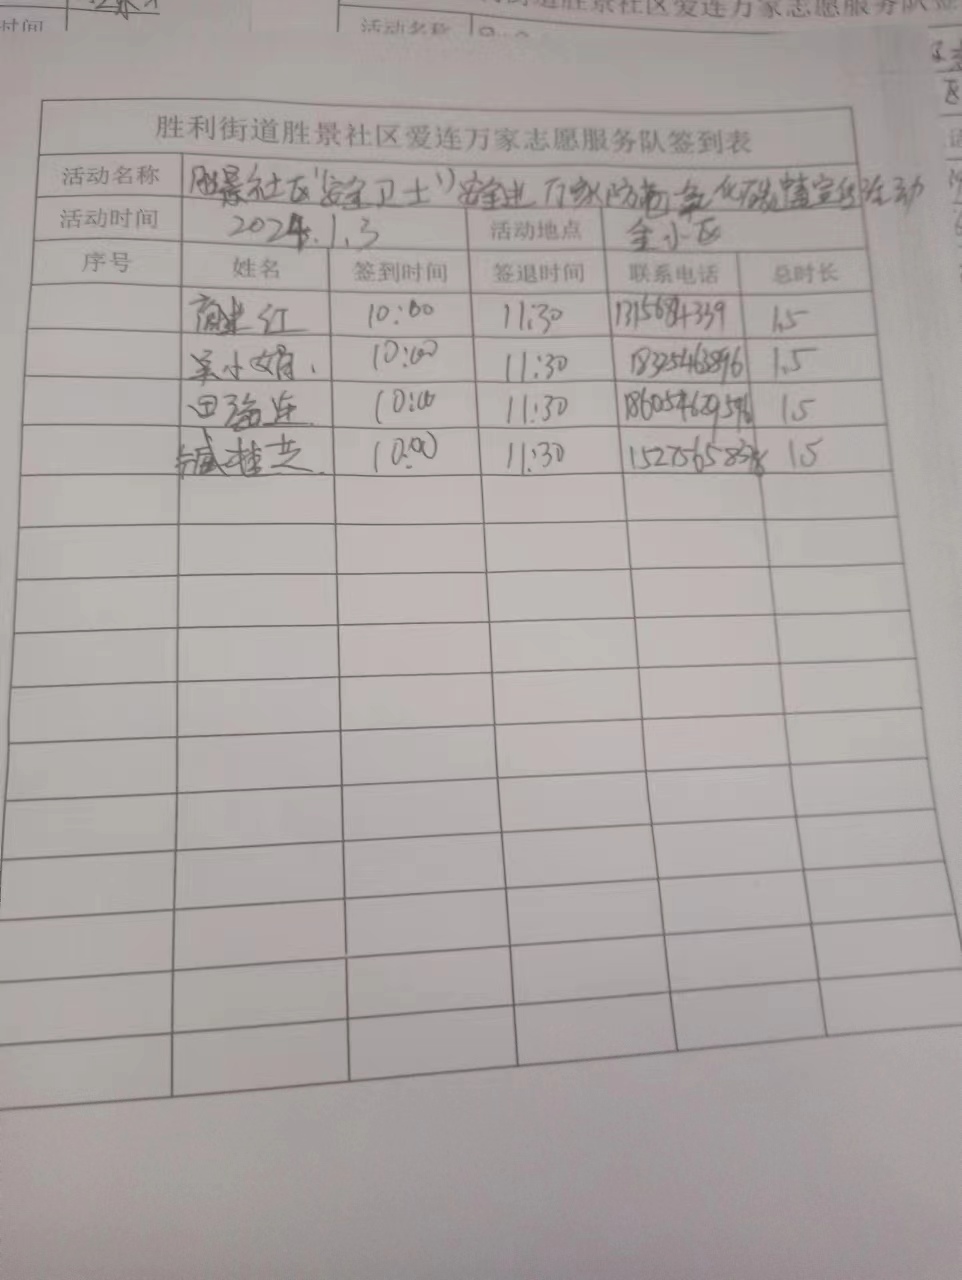 时间
街道胜景社区爱连万家志愿服务队签
活动名称
胜利街道胜景社区爱连万家志愿服务队签到表
活动名称 胜景社区“安全卫士”安全进万家防范一氧化碳中毒宣传活动
活动时间 2024.1.3 活动地点 全小区
序号 姓名 签到时间 签退时间 联系电话 总时长
红 10:00 11:30 1.5
吴小娟 10:00 11:30 18325463896 1.5
田 莲 10:00 11:30 1.5
臧桂芝 10:00 11:30 1.5